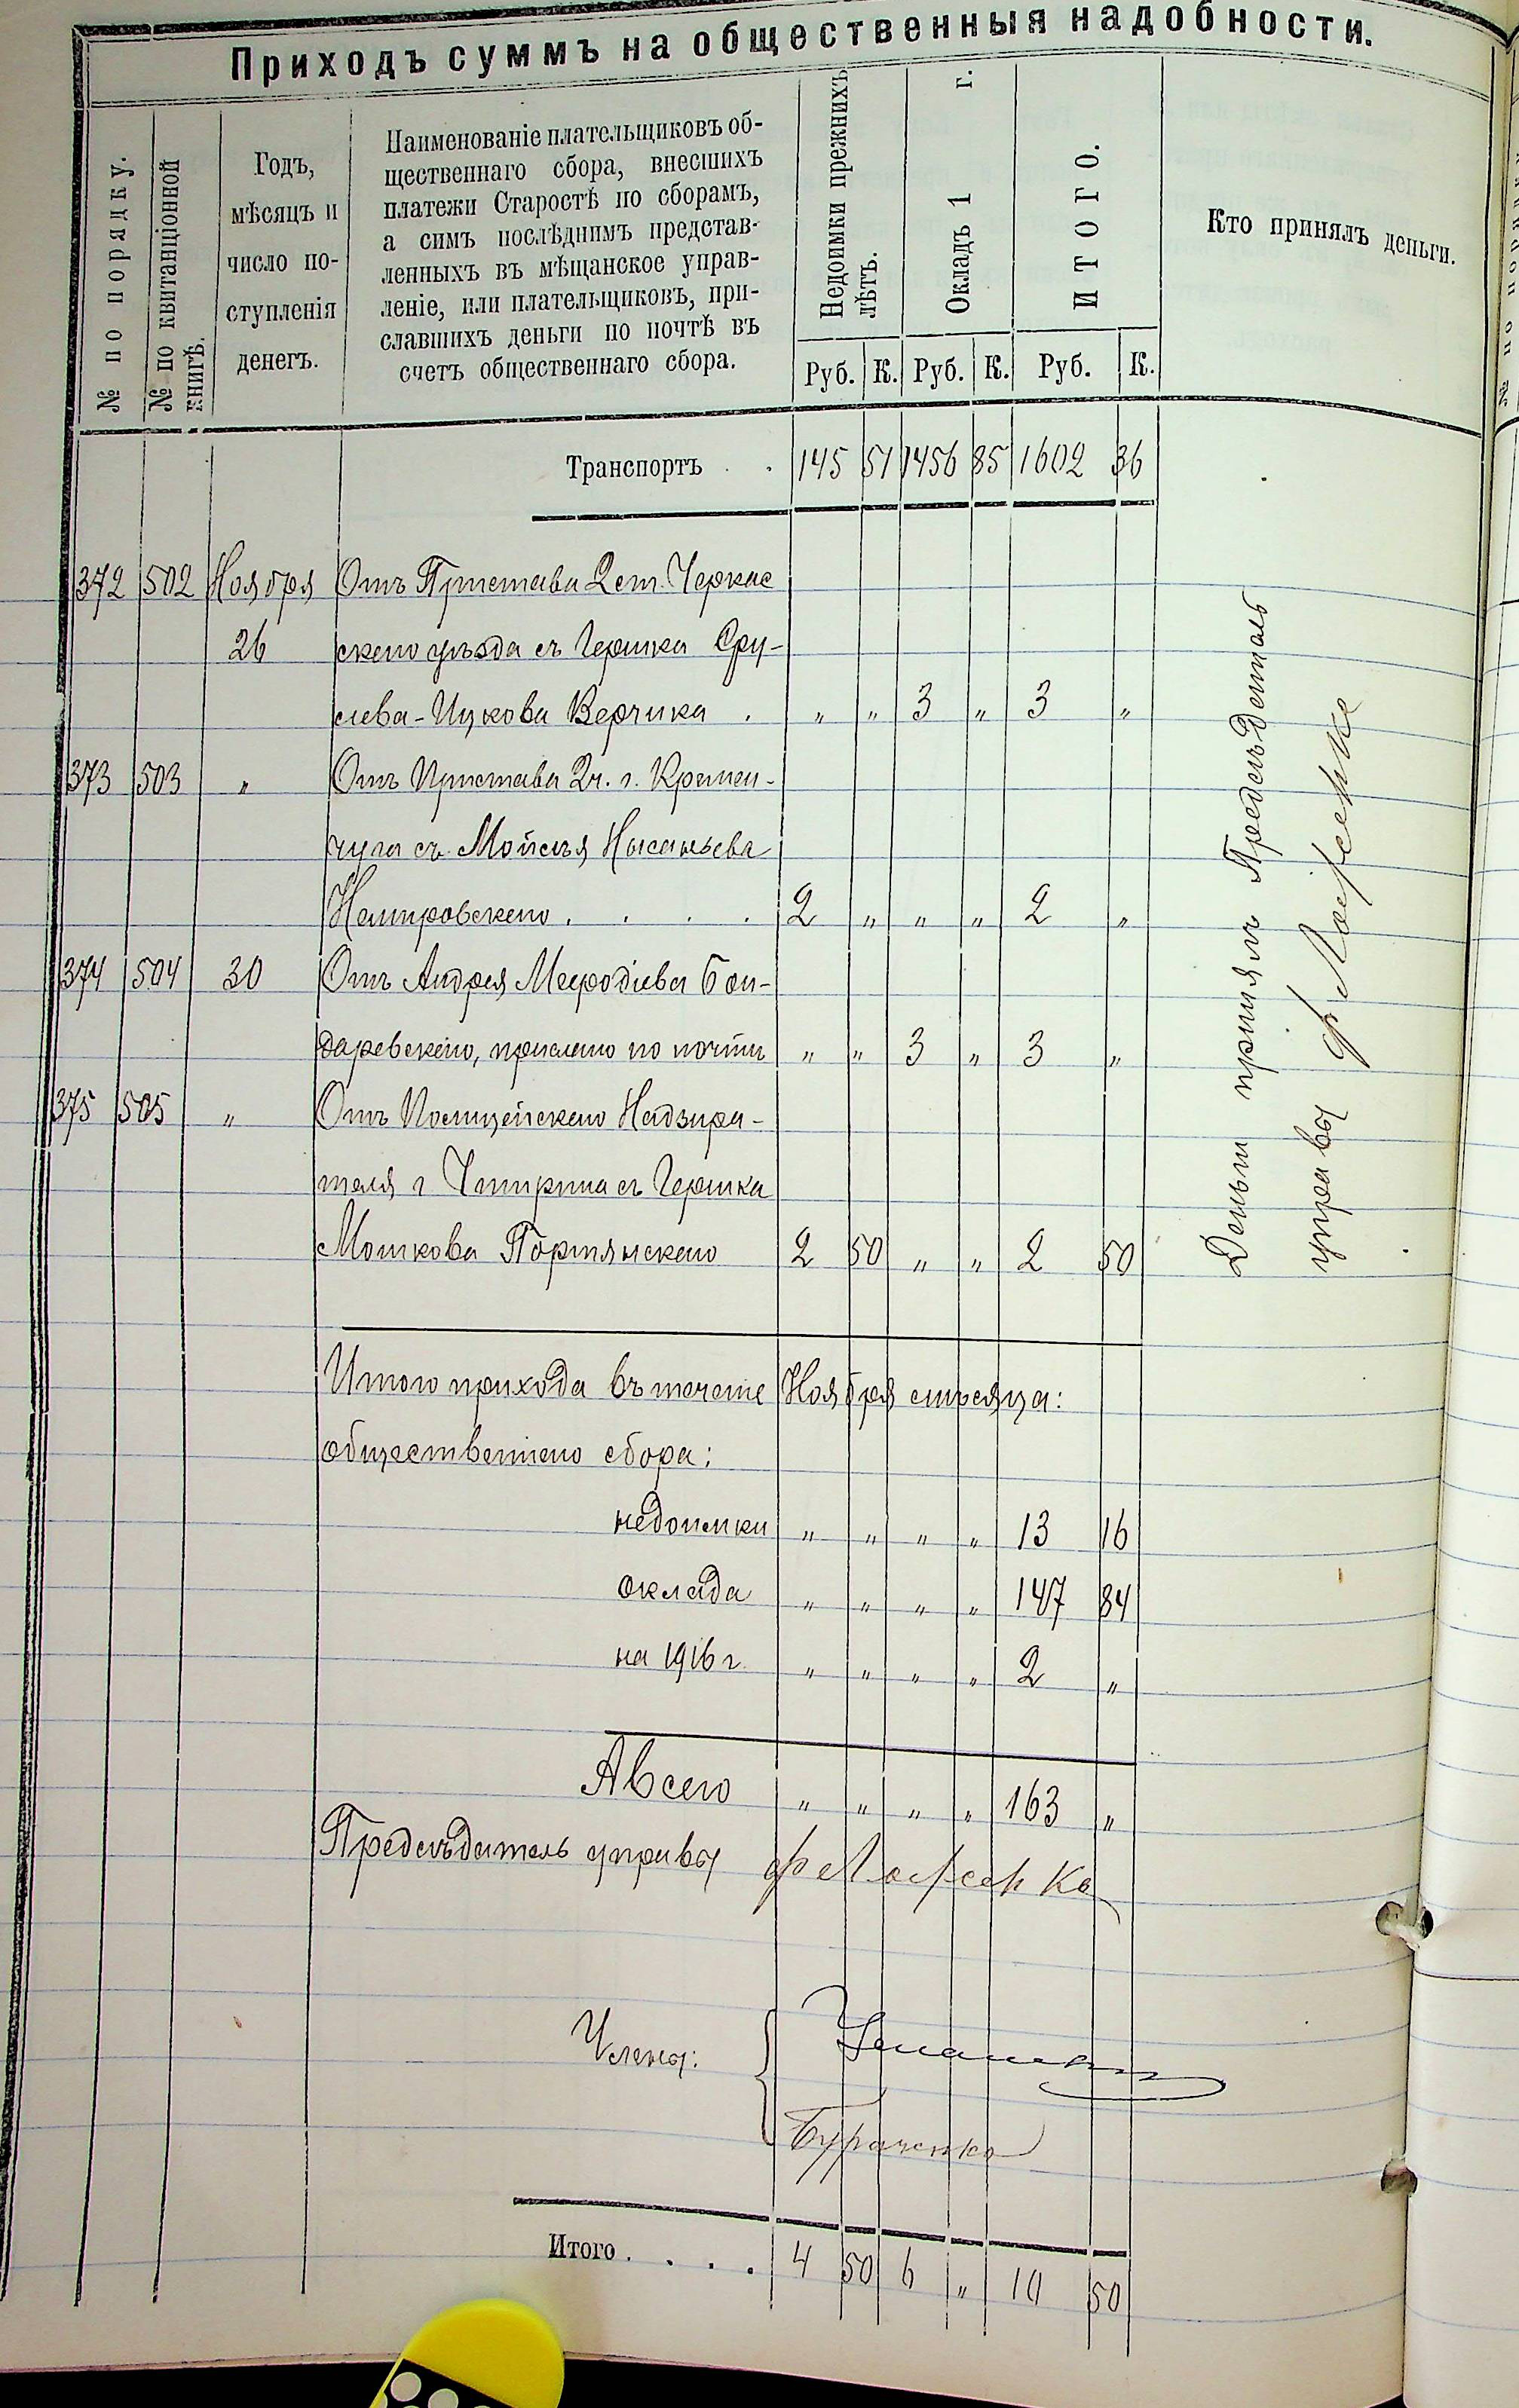 Приходъ суммъ на общественныя надобности.
№ по порядку.
№ по квитанціонной
книгѣ.
Годъ,
мѣсяцъ и
число по-
ступленія
денегъ.
Наименованіе плательщиковъ об-
щественнаго сбора, внесшихъ
платежи Старостѣ по сборамъ,
а симъ послѣднимъ представ-
ленныхъ въ мѣщанское управ-
леніе, или плательщиковъ, при-
славшихъ деньги по почтѣ въ
счетъ общественнаго сбора.
Недоимки прежнихъ
лѣтъ.
Окладъ 1 г.
ИТОГО.
Кто принялъ деньги.
Руб. К. Руб. К. Руб. К.
Транспортъ . . 145 51 1456 85 1602 36
372 502 Ноября Отъ Пристава 2 ст. Черкас
26 скаго уѣзда съ Гершка Сру-
лева-Ицкова Верчика . " " 3 " 3 "
373 503 " Отъ Пристава 2 ч. г. Кремен-
чуга съ Мойсѣя Нысаньева
Немировскаго . . . . 2 " " " 2 "
374 504 30 Отъ Андрея Меѳодіева Бон-
даревскаго, прислано по почтѣ " " 3 " 3 "
375 505 " Отъ Полицейскаго Надзира-
теля г Чигирина съ Гершка
Мошкова Портянскаго 2 50 " " 2 50
Деньги принялъ Предсѣдатель
управы
Итого прихода въ теченіе Ноября мѣсяца:
общественнаго сбора:
недоимки " " " " 13 16
оклада " " " " 147 84
на 1916 г. " " " " 2 "
А всего " " " " 163 "
Предсѣдатель управы
Члены:
Бураченко
Итого . . . . 4 50 6 " 10 50